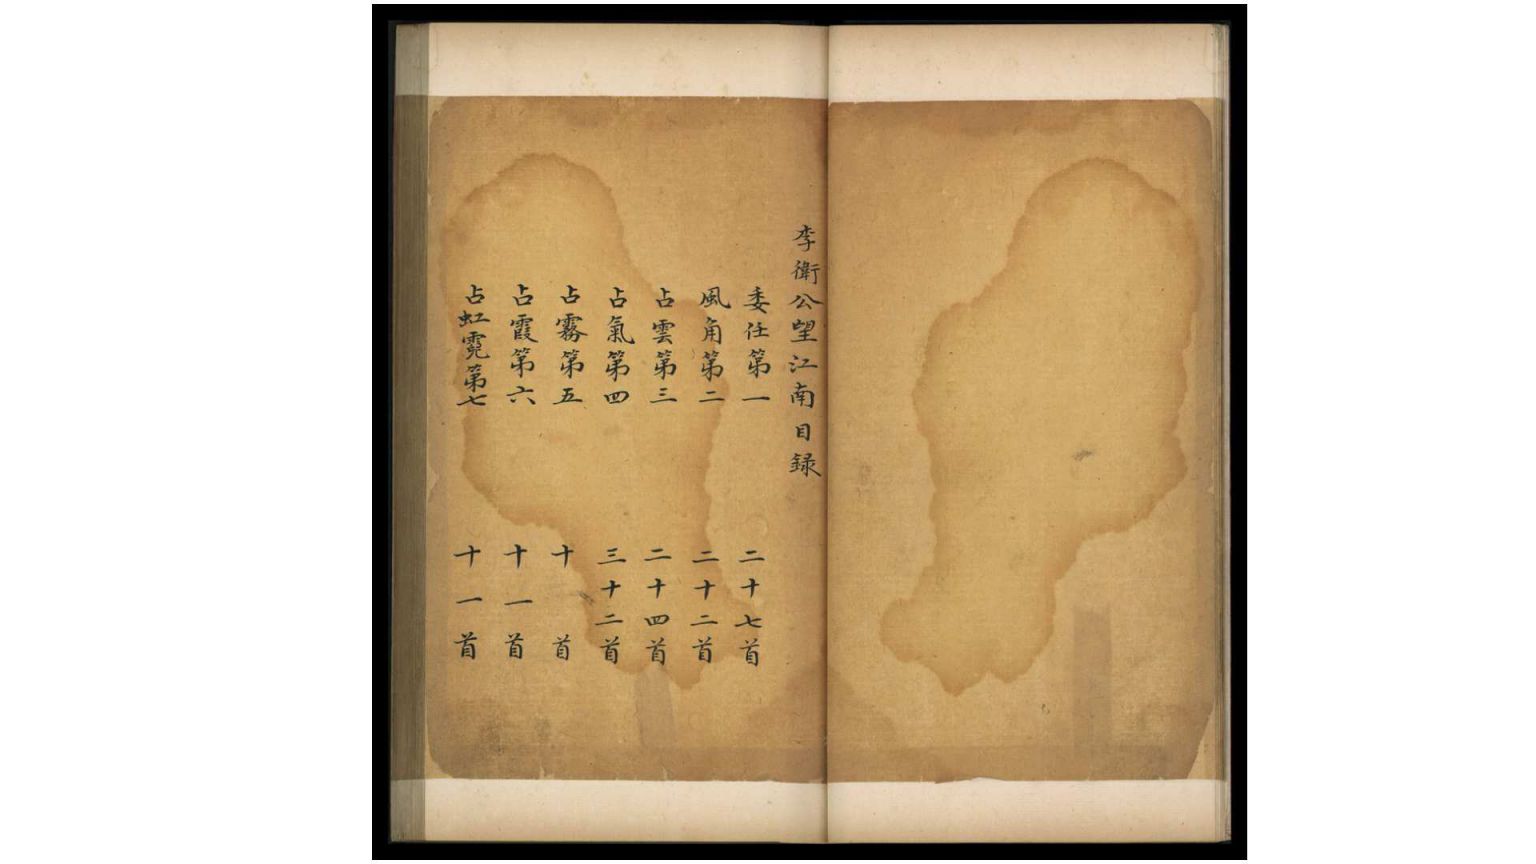 李衛公望江南目録
委任第一 二十七首
風角第二 二十二首
占雲第三 二十四首
占氣第四 三十二首
占霧第五 十首
占霞第六 十一首
占虹霓第七 十一首